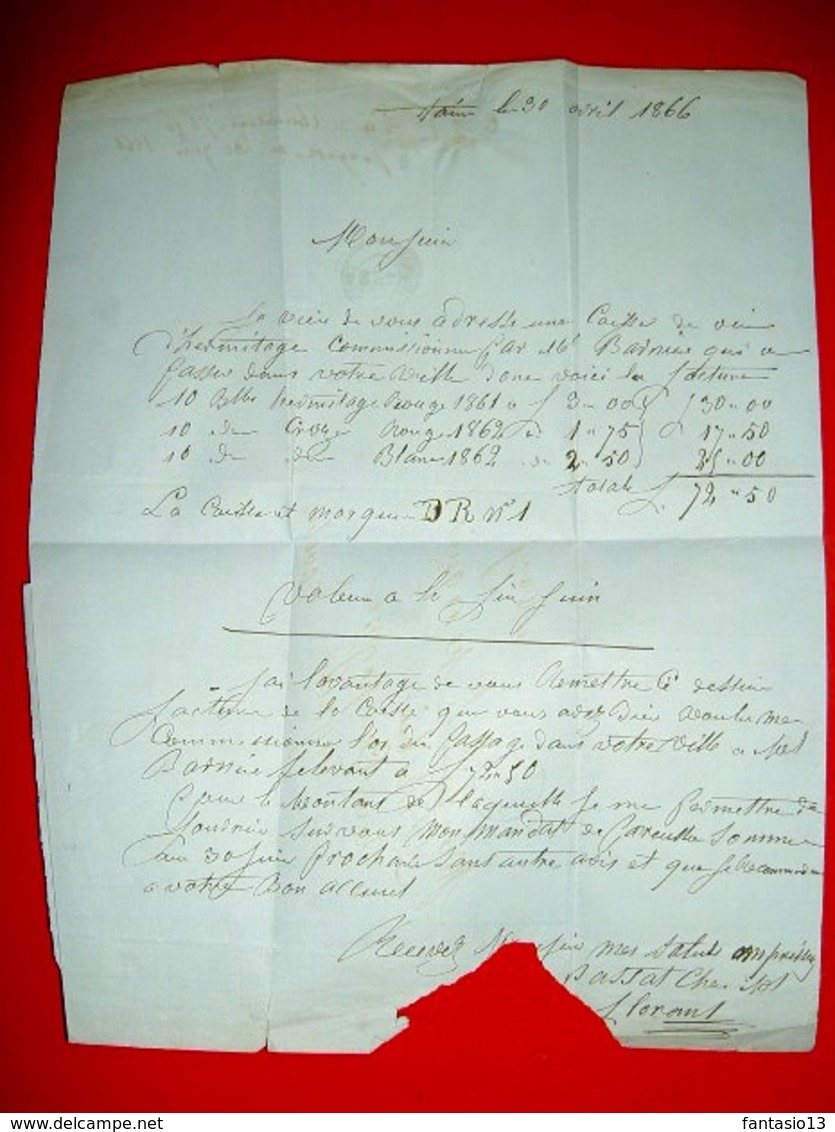 Tain le 30 avril 1866
Monsieur
Je viens de vous adresse une Caisse de vin
d'hermitage Commissionne par Mr Barnier qui a
passer dans votre Ville donc voici la facture
10 Blles hermitage Rouge 1861 a f 3 " 00 f 30 " 00
10 dn Croze Rouge 1862 a 1 " 75 17 " 50
10 dn dn Blanc 1862 2 " 50 25 " 00
Totale f. 72 " 50
La Caisse et marque DR n° 1
Valeur a le fin Juin
J'ai l'avantage de vous Remettre Ci dessus
facture de la Caisse que vous avez bien voulu me
Commissionner l'or du passage dans votre Ville a Mr
Barnier s'elevant a f 72 " 50
pour le Montant de laquelle je me permettre de
fournir sur vous mon mandat de pareille Somme
au 30 Juin prochain Sans autre avis et que je Recommande
a votre Bon acceuil
Recevez Monsieur mes Saluts empressés
Florant
delcampe.net
fantasio13